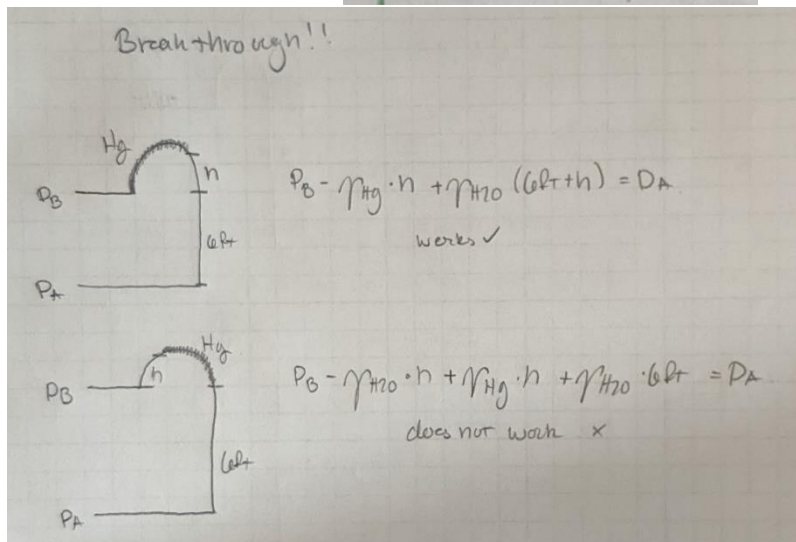 Breakthrough!!
Hg
h
PB
6ft
PA
PB - γHg · h + γH2O (6ft + h) = PA
works ✓
Hg
h
PB
6ft
PA
PB - γH2O · h + γHg · h + γH2O · 6ft = PA
does not work ×